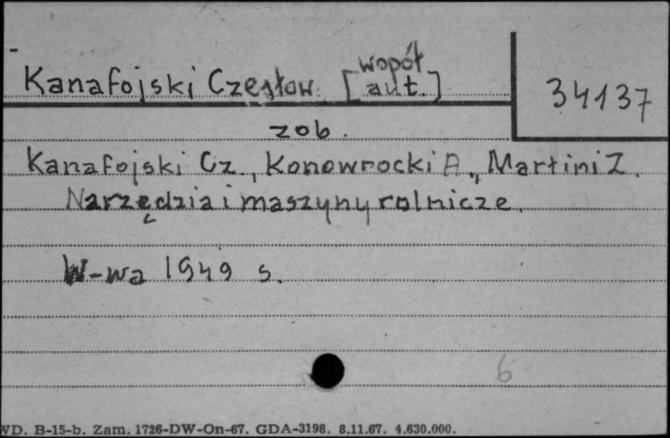 Kanafojski Czesław. [wopół aut.]
34137
zob.
Kanafojski Cz., Konowrocki A., Martini Z.
Narzędzia i maszyny rolnicze.
W-wa 1949 s.
6
WD. B-15-b. Zam. 1726-DW-On-67. GDA-3198. 8.11.67. 4.630.000.